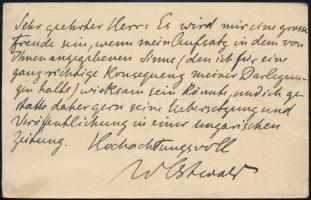 Sehr geehrter Herr: Es wird mir eine grosse
Freude sein, wenn mein Aufsatz in dem von
Ihnen angegebenen Sinne (den ich für eine
ganz richtige Konsequenz meiner Darlegun-
gen halte) wirksam sein könnte, und ich ge-
statte daher gern seine Uebersetzung und
Veröffentlichung in einer ungarischen
Zeitung. Hochachtungsvoll
W Ostwald